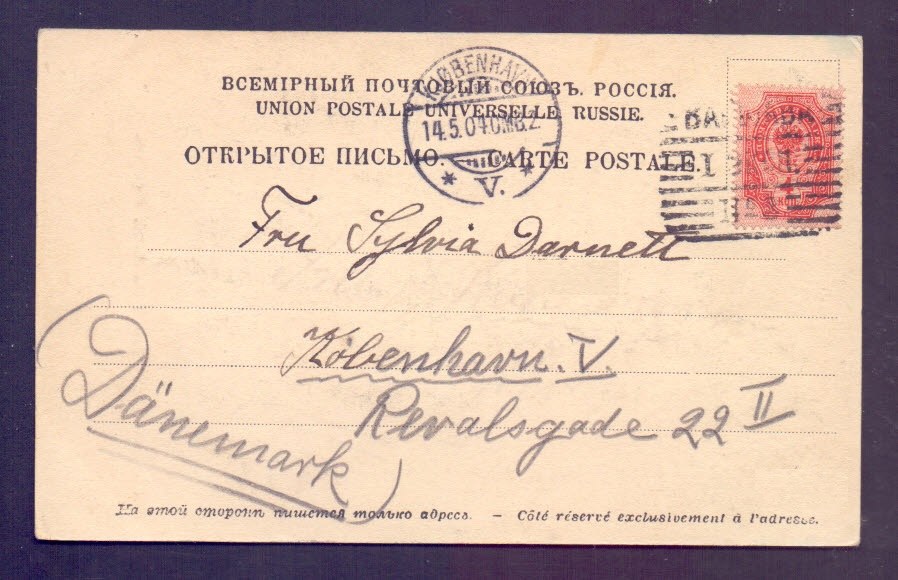 ВСЕМІРНЫЙ ПОЧТОВЫЙ СОЮЗЪ. РОССІЯ.
UNION POSTALE UNIVERSELLE. RUSSIE.
ОТКРЫТОЕ ПИСЬМО. — CARTE POSTALE.
KJØBENHAVN
14.5.04 OMB.2
* V. *
Fru Sylvia Darnett
København. V.
Revalsgade 22 II
(Dänemark)
На этой сторонѣ пишется только адресъ. — Côté réservé exclusivement à l'adresse.